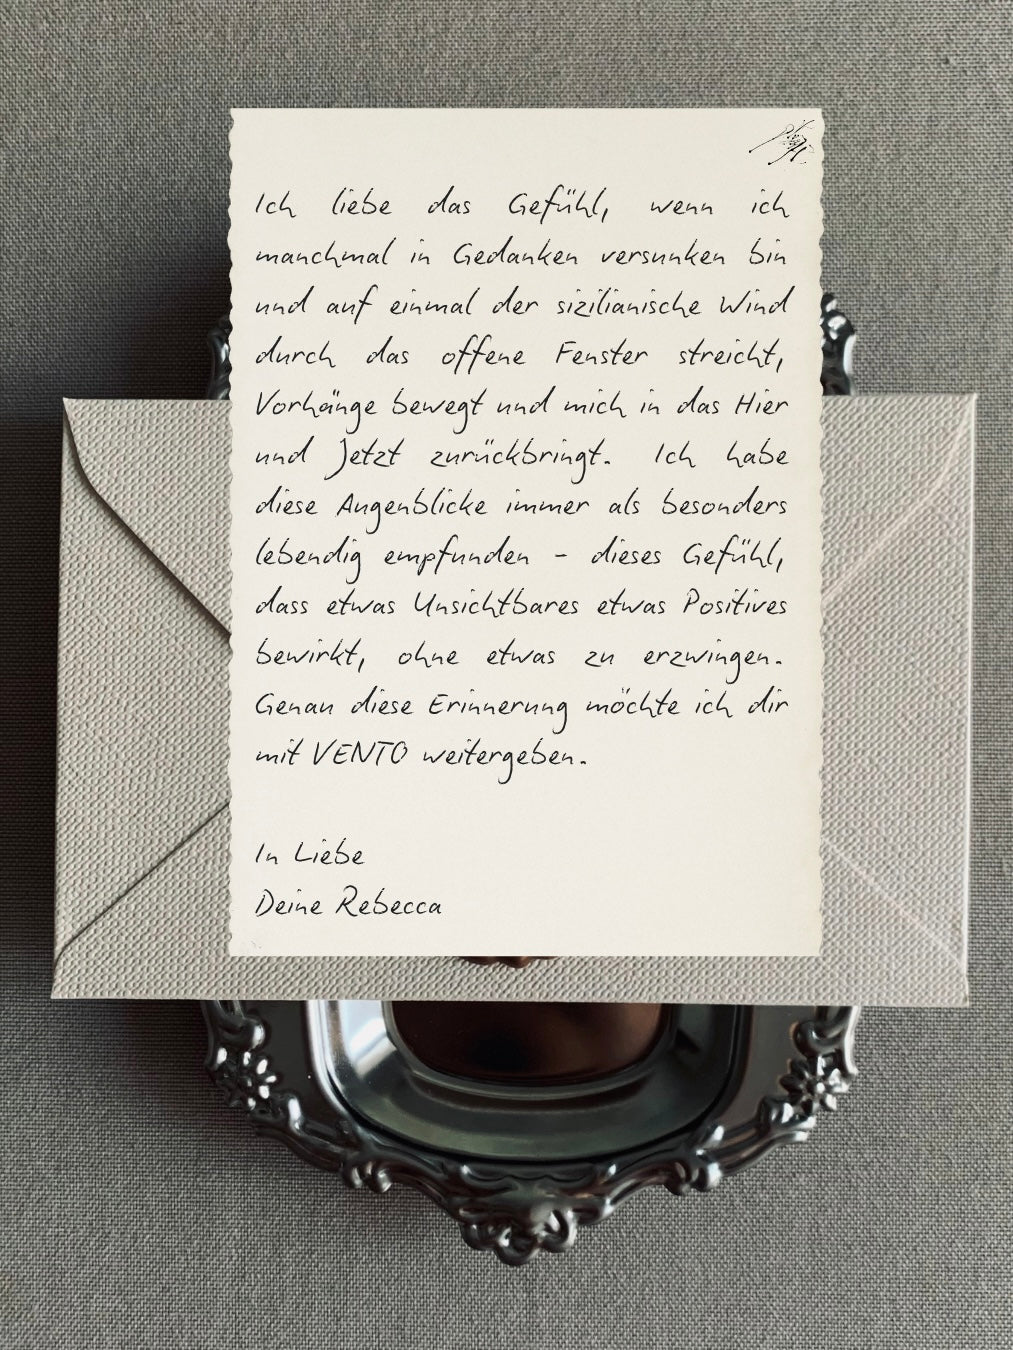 Ich liebe das Gefühl, wenn ich
manchmal in Gedanken versunken bin
und auf einmal der sizilianische Wind
durch das offene Fenster streicht,
Vorhänge bewegt und mich in das Hier
und Jetzt zurückbringt. Ich habe
diese Augenblicke immer als besonders
lebendig empfunden - dieses Gefühl,
dass etwas Unsichtbares etwas Positives
bewirkt, ohne etwas zu erzwingen.
Genau diese Erinnerung möchte ich dir
mit VENTO weitergeben.
In Liebe
Deine Rebecca